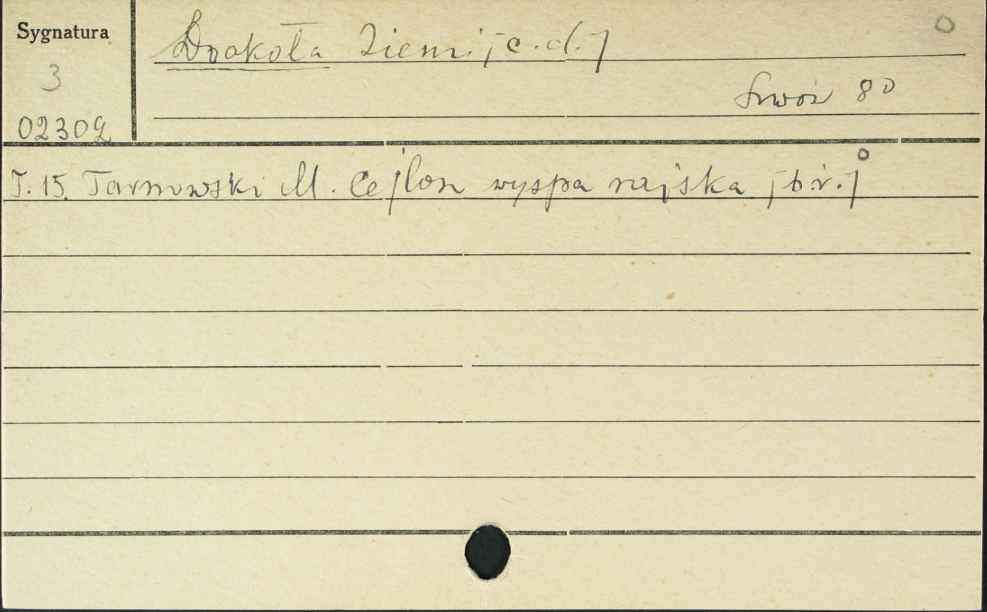 Sygnatura
3
02302
Dookoła Ziemi [c.d.]
Lwów 8°
T. 15. Tarnowski M. Cejlon wyspa rajska [b.r.]